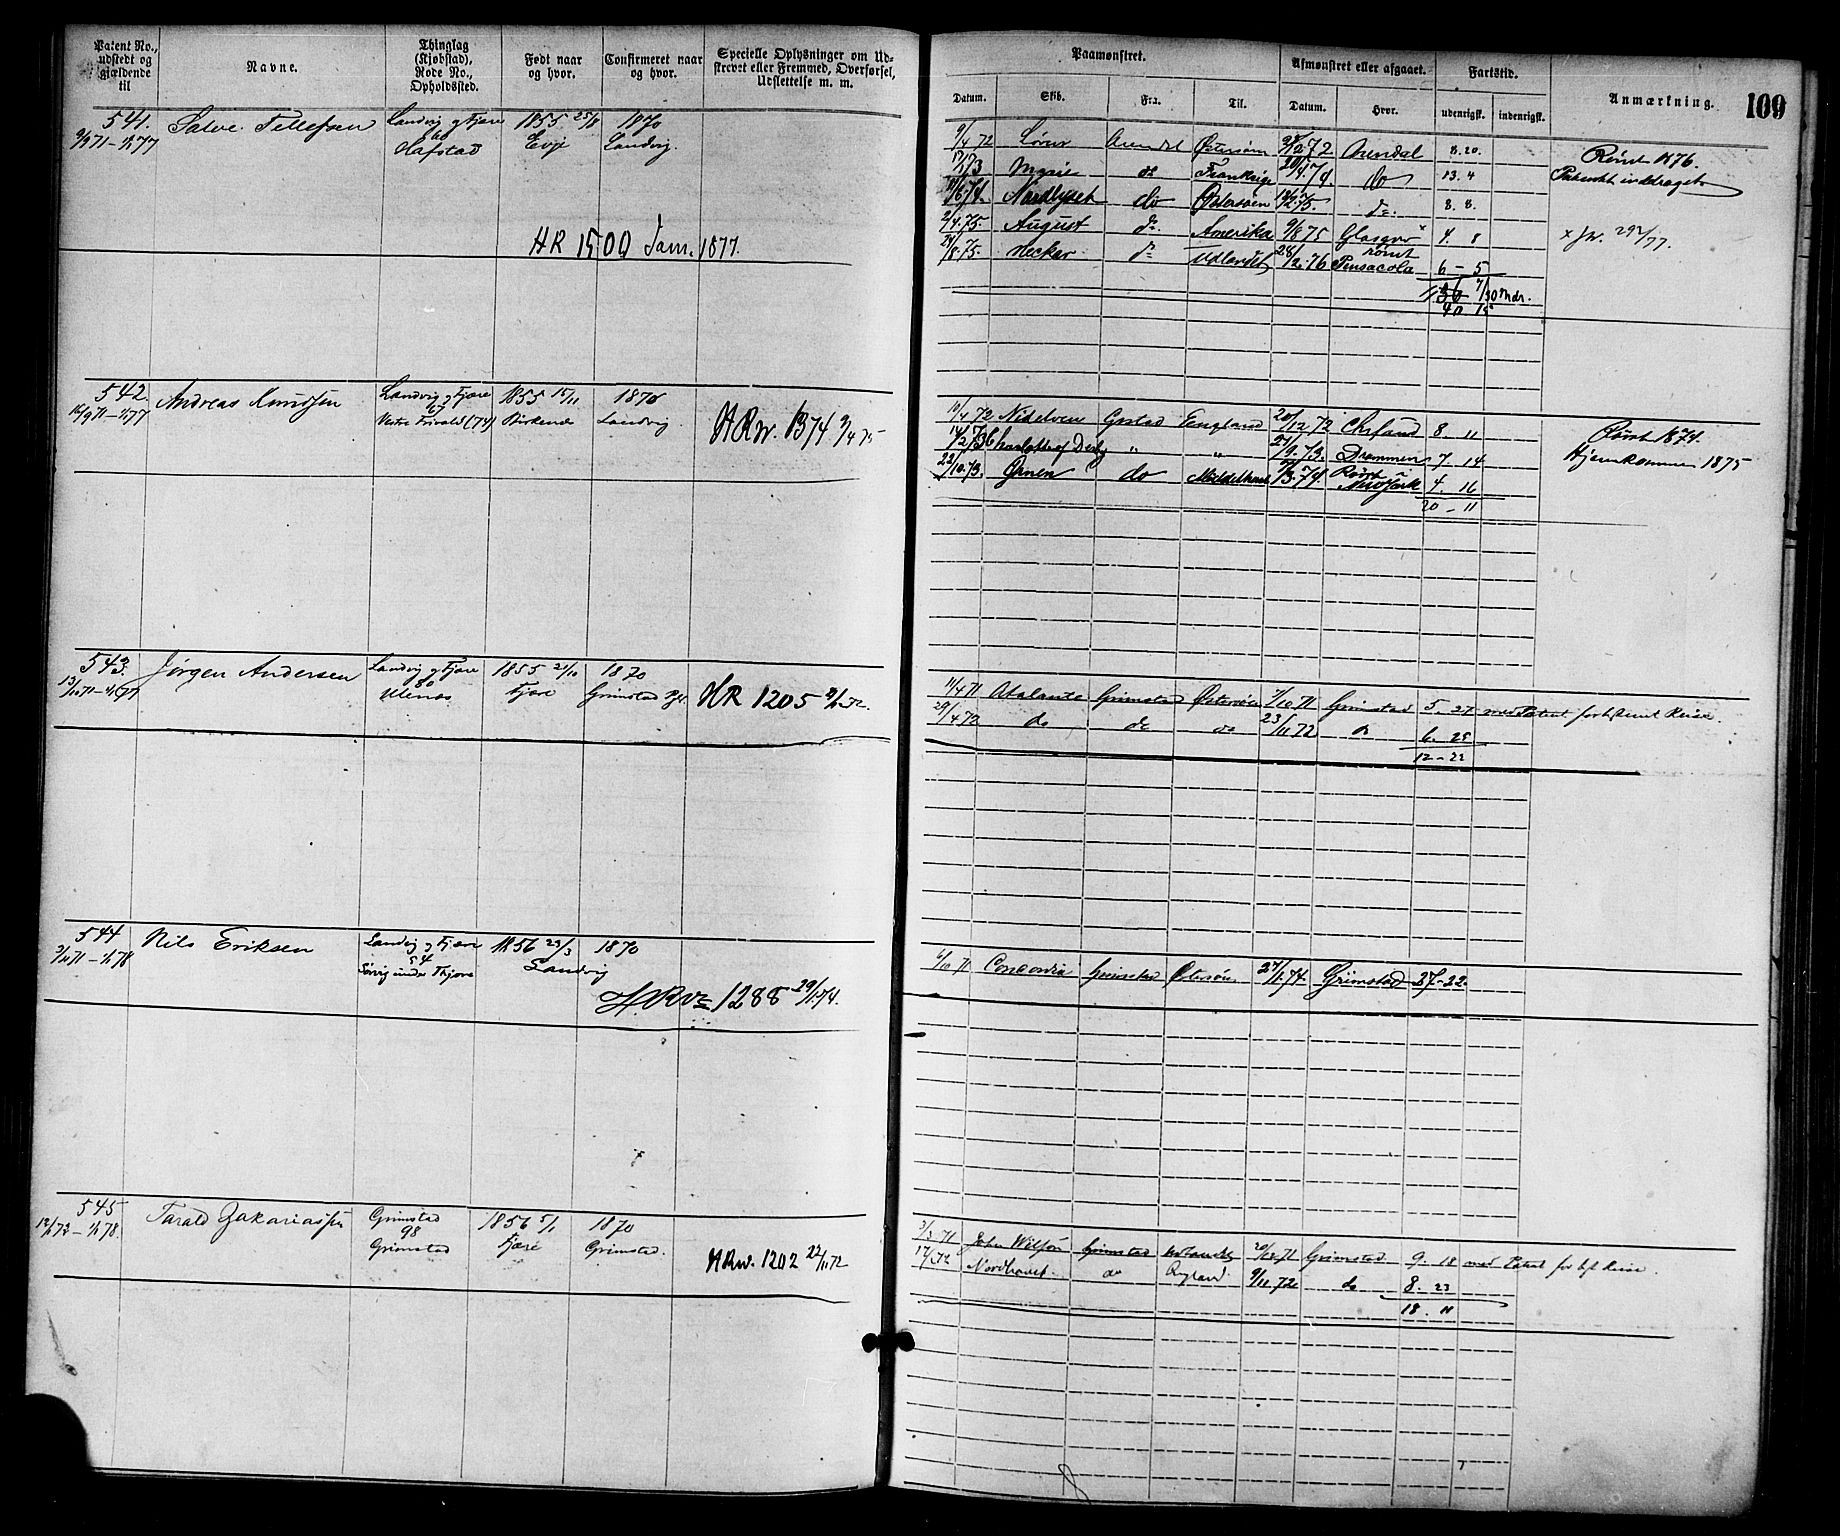 Patent No., udstedt og gjældende til
Navne.
Thinglag (Kjøbstad), Rode No., Opholdssted.
Født naar og hvor.
Confirmeret naar og hvor.
Specielle Oplysninger om Udskrevet eller Fremmed, Overførsel, Udslettelse m. m.
Paamønstret.
Afmønstret eller afgaaet.
Fartstid.
Anmærkning.
109
Datum.
Skib.
Fra.
Til.
Datum.
Hvor.
udenrigsk.
indenrigsk.
541. Salve Tellefsen Landvig og Fjære 1855 25/8 1870
9/9 71 – 1/1 77 60 Hafstad Evje Landvig.
HR 1500 Jan. 1877.
9/4 72 Arendal Østersøen 72 Arendal 8. 20.
73 Marie do Frankrige 74. do 13. 4
74. Nordlyset do Østersøen 75. do. 8. 8.
2/4 75. August do Amerika 9/8 75 Glasgow x 4. 8
24/8 75. Neckar do Udlandet 76 rømt Pensacola 6 – 5
36 7/30 Mdr.
40 15
Rømt 1876.
Patentet inddraget
x Jr. 292/77.
542. Andreas Knudsen Landvig og Fjære 1855 15/11 1870
1/1 77 67 Vestre Birkenes Landvig.
HRw. 1374 9/4 75
10/4 72 Nidelven Gjestad England 20/12 72 Chrsand 8. 11
14/2 73 Charlotte af " " 21/9. 73. Drammen 7 14
22/10. 73. Ørnen do Middelhavet 3. 74. Rømt Newyork 4. 16
20 – 11
Rømt 1874.
Hjemkommen 1875
543. Jørgen Andersen Landvig og Fjære 1855 21/10 1870
13/10 71 – 1/1 77 80 Ulenes Fjære Grimstad
HR 1205 72.
11/4 71 Atalante Grimstad Østersøen 7/10 71 Grimstad 5. 27 med Patent for Reise.
29/4 72 do do do 23/11 72 do 6. 25
12 – 22
544 Nils Eriksen Landvig og Fjære 1856 23/3 1870
71 – 1/1 78 54 Sørvig under Landvig
H.Rw 1288 29/11 74.
6/10 71 Concordia Grimstad Østersøen 27/11 74. Grimstad 27 – 22.
545 Tarald Zakariassen Grimstad 1856 5/1 1870
12/1 72 – 1/1 78. 98 Grimstad Fjære Grimstad.
HRw. 1202 22/11 72
3/3 71 John Wilson Grimstad 20/12 71 Grimstad 9. 18 med Patent for Reise.
72 Nordhavet. do England. 9/11 72 do 8. 23
18. 11